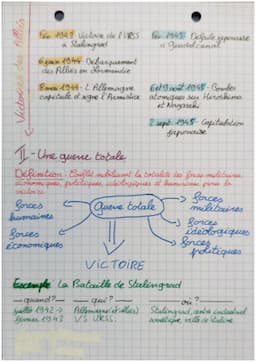 Victoires des Alliés
Fév 1943 Victoire de l'URSS
à Stalingrad
6 juin 1944 Débarquement
des Alliés en Normandie
8 mai 1944 - L'Allemagne
capitule et signe l'Armistice
Fév 1943 Défaite japonaise
à Guadalcanal
6 et 9 août 1945 - Bombes
atomiques sur Hiroshima
et Nagasaki
2 sept 1945 - Capitulation
japonaise
II - Une guerre totale
Définition : Conflit mobilisant la totalité des forces militaires,
économiques, politiques, idéologiques et humaines pour la
victoire.
forces
humaines
forces
économiques
Guerre totale
forces
militaires
forces
idéologiques
forces
politiques
VICTOIRE
Exemple La Bataille de Stalingrad
quand ?
juillet 1942 →
février 1943
qui ?
Allemagne (et alliés)
VS URSS.
où ?
Stalingrad, centre industriel
soviétique, ville de Staline